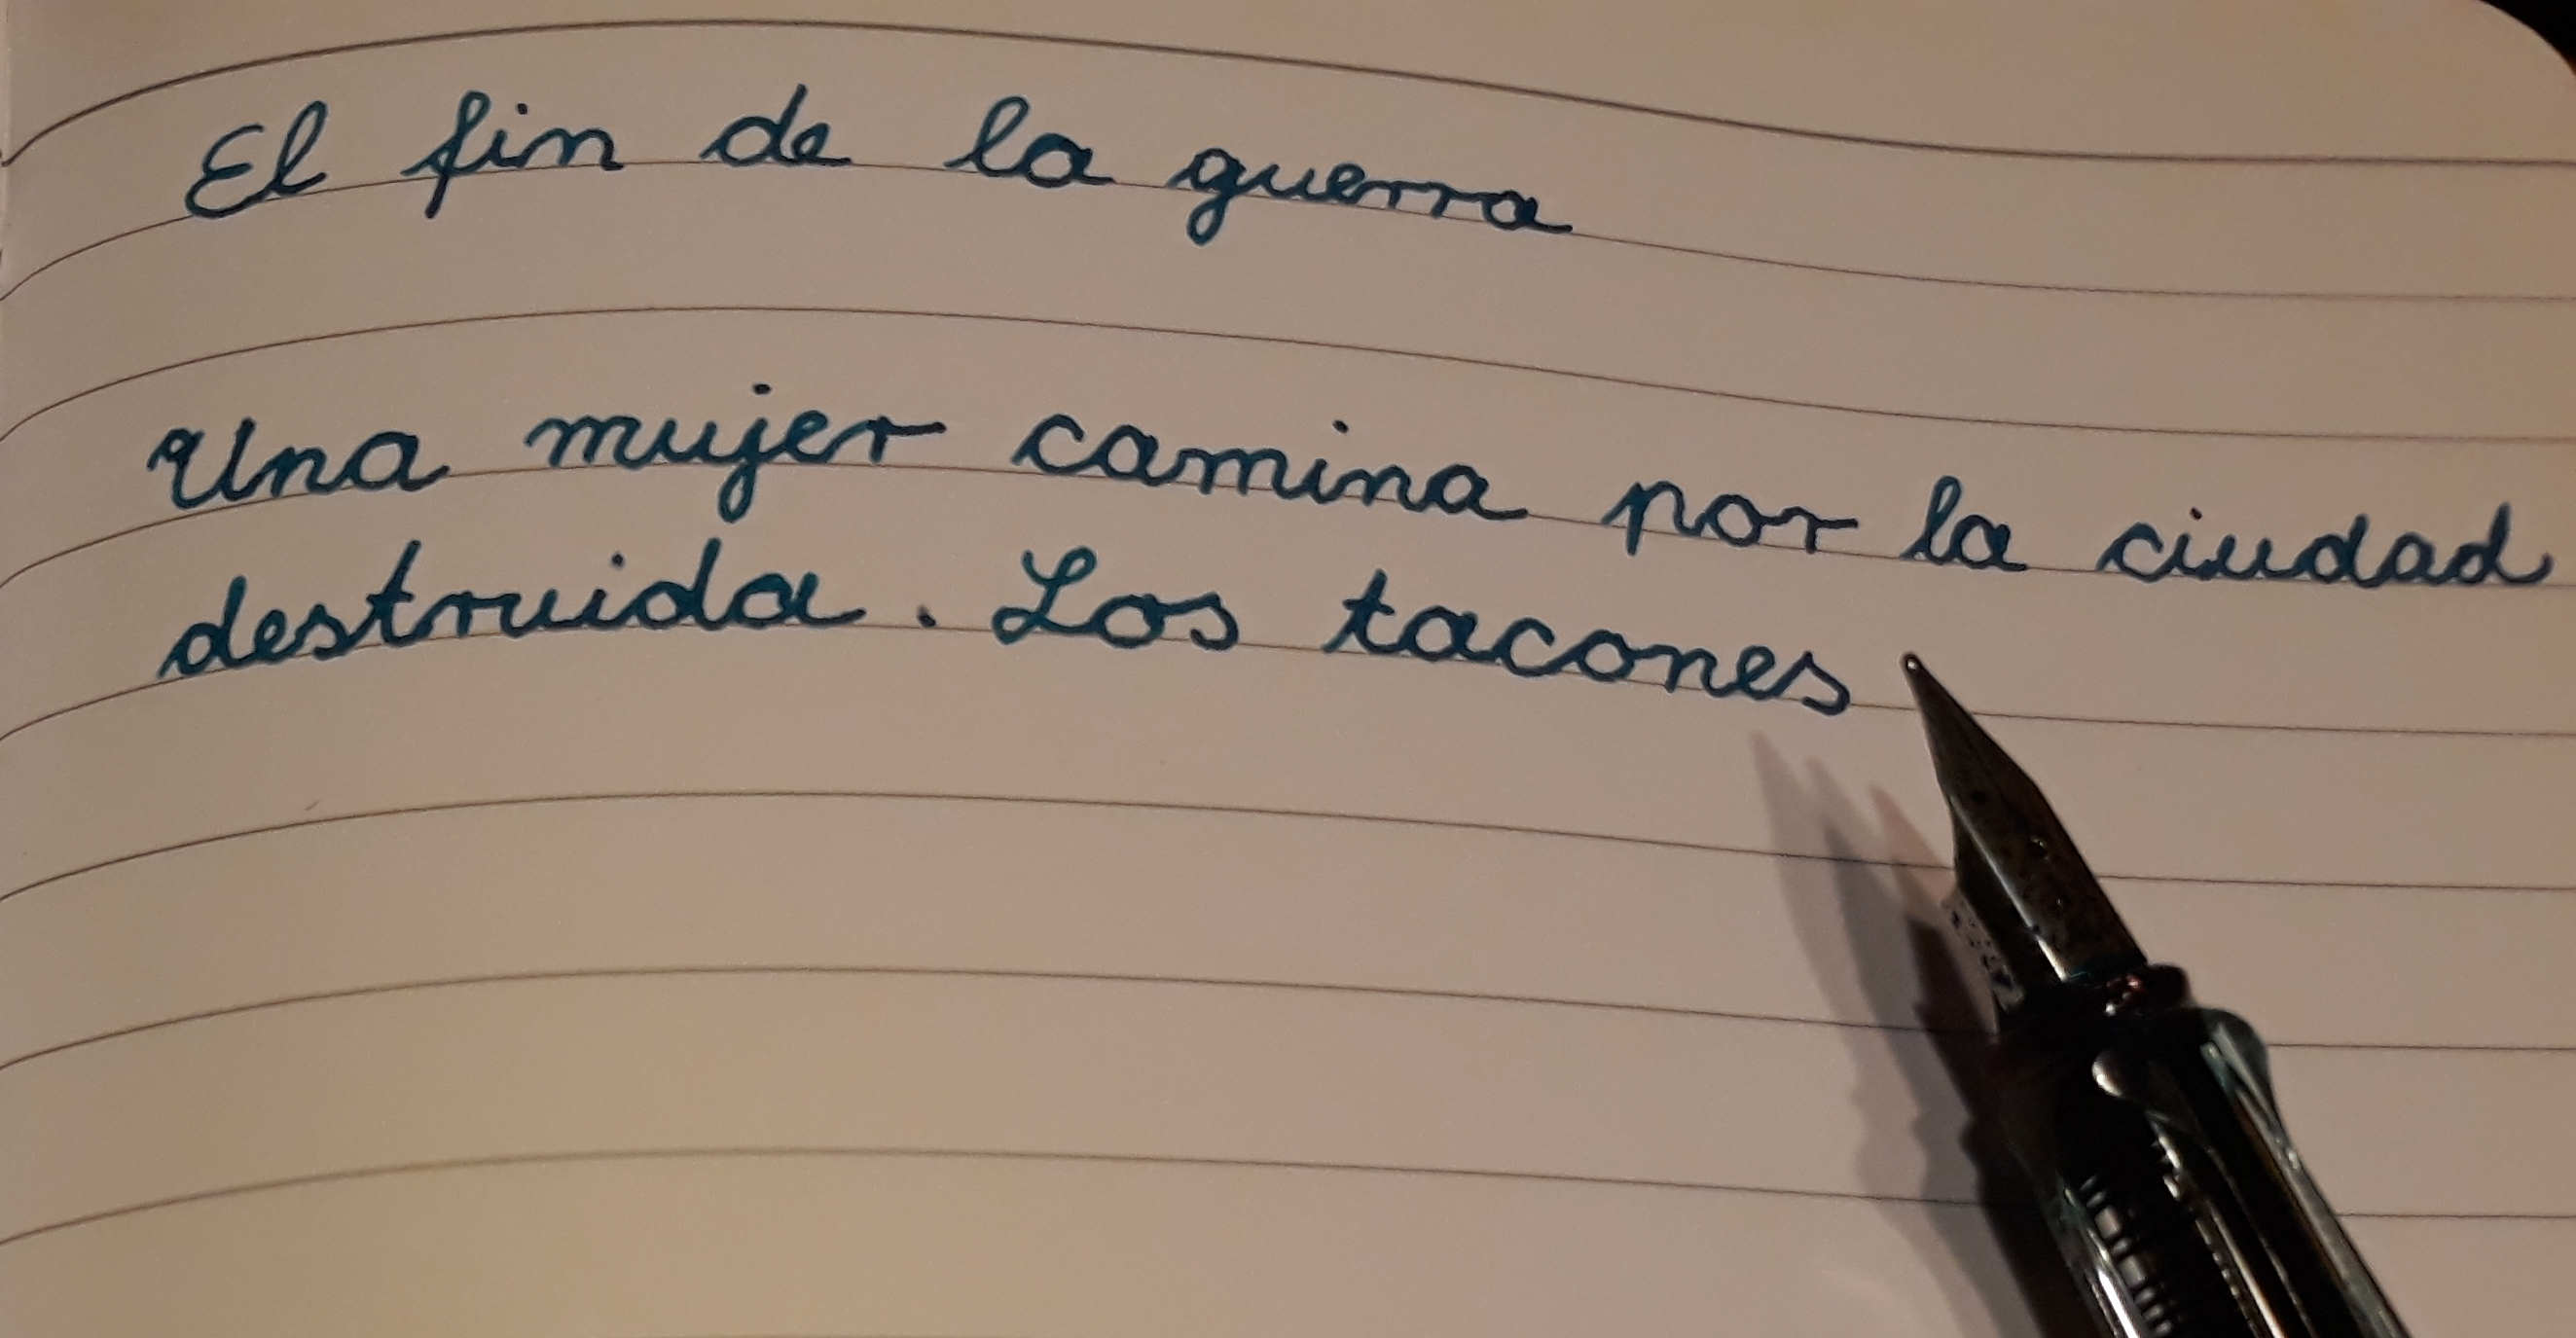 El fin de la guerra
Una mujer camina por la ciudad
destruida. Los tacones